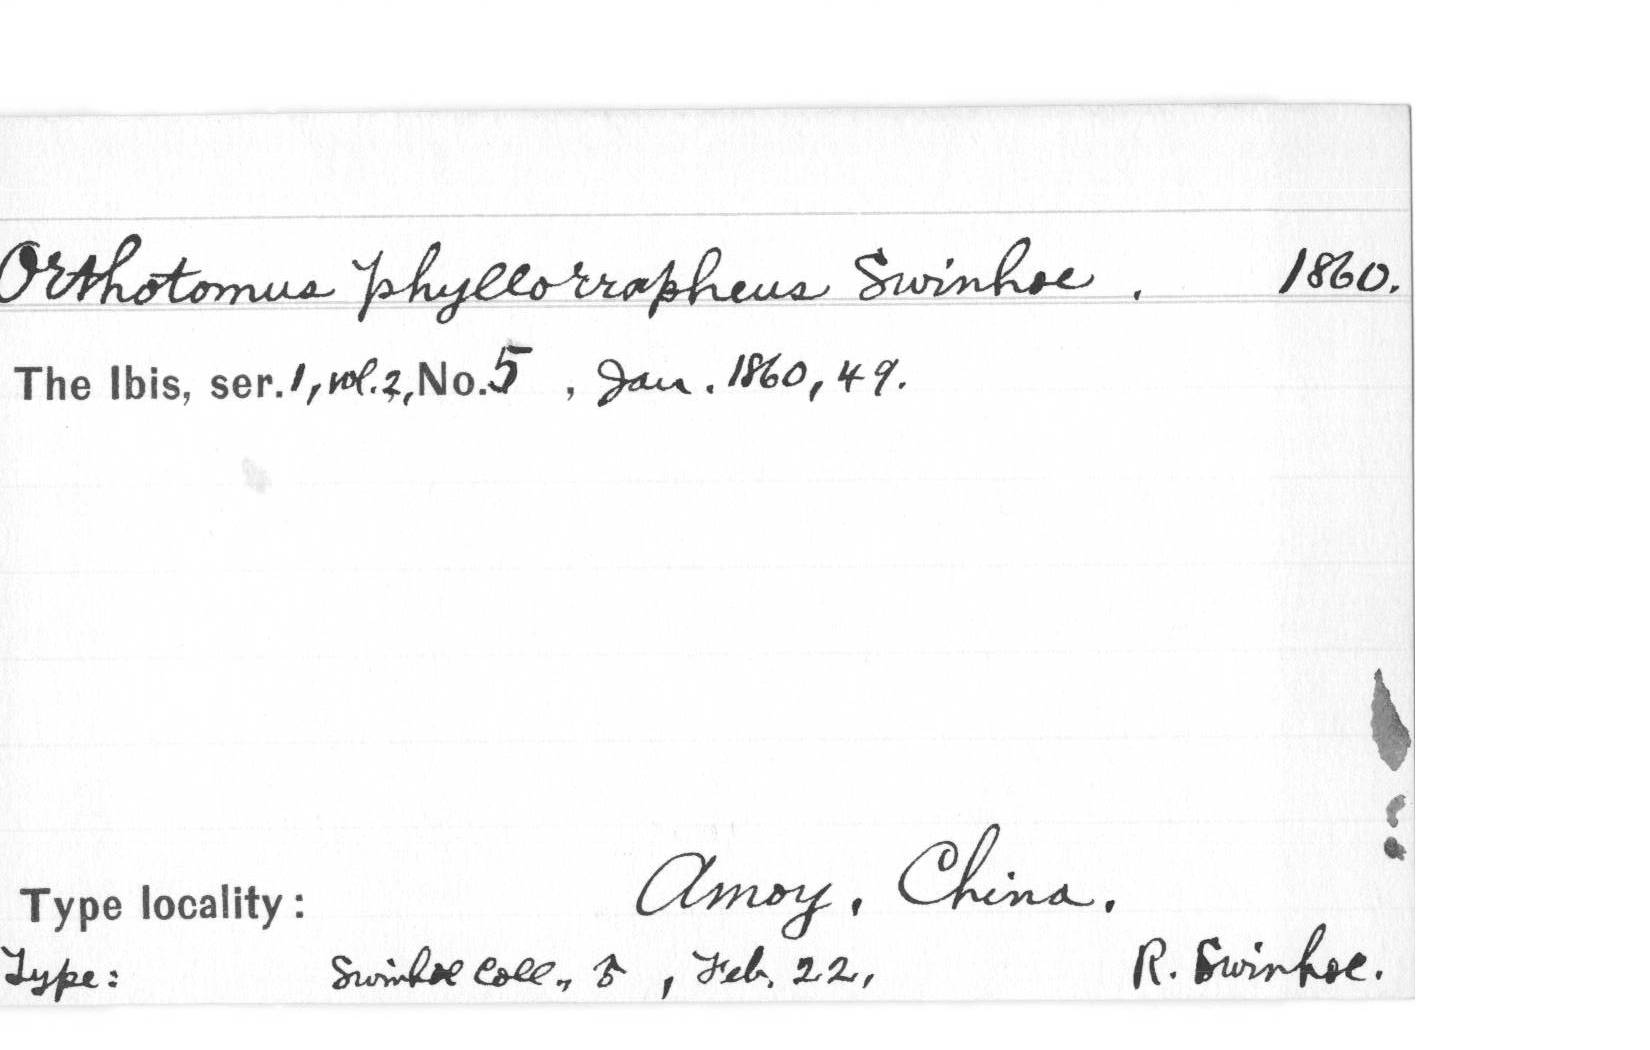 Orthotomus phyllorrapheus Swinhoe. 1860.
The Ibis, ser. 1, vol. 2, No. 5, Jan. 1860, 49.
Type locality: Amoy, China.
Type: Swinhoe Coll., ♂, Feb. 22, R. Swinhoe.